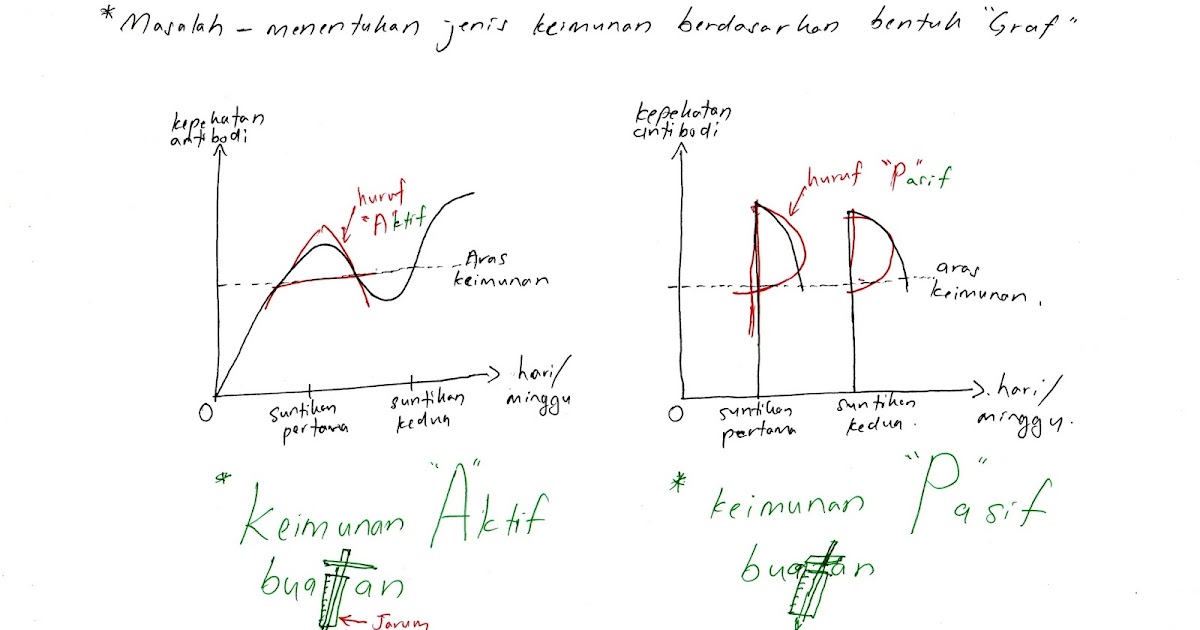 * Masalah - menentukan jenis keimunan berdasarkan bentuk "Graf"
kepekatan
antibodi
huruf
"A"ktif
Aras
keimunan
hari/
minggu
O
suntikan
pertama
suntikan
kedua
kepekatan
antibodi
huruf "P"asif
aras
keimunan.
hari/
minggu.
O
suntikan
pertama
suntikan
kedua.
* keimunan "A"ktif
buatan
Jarum
* keimunan "P"asif
buatan